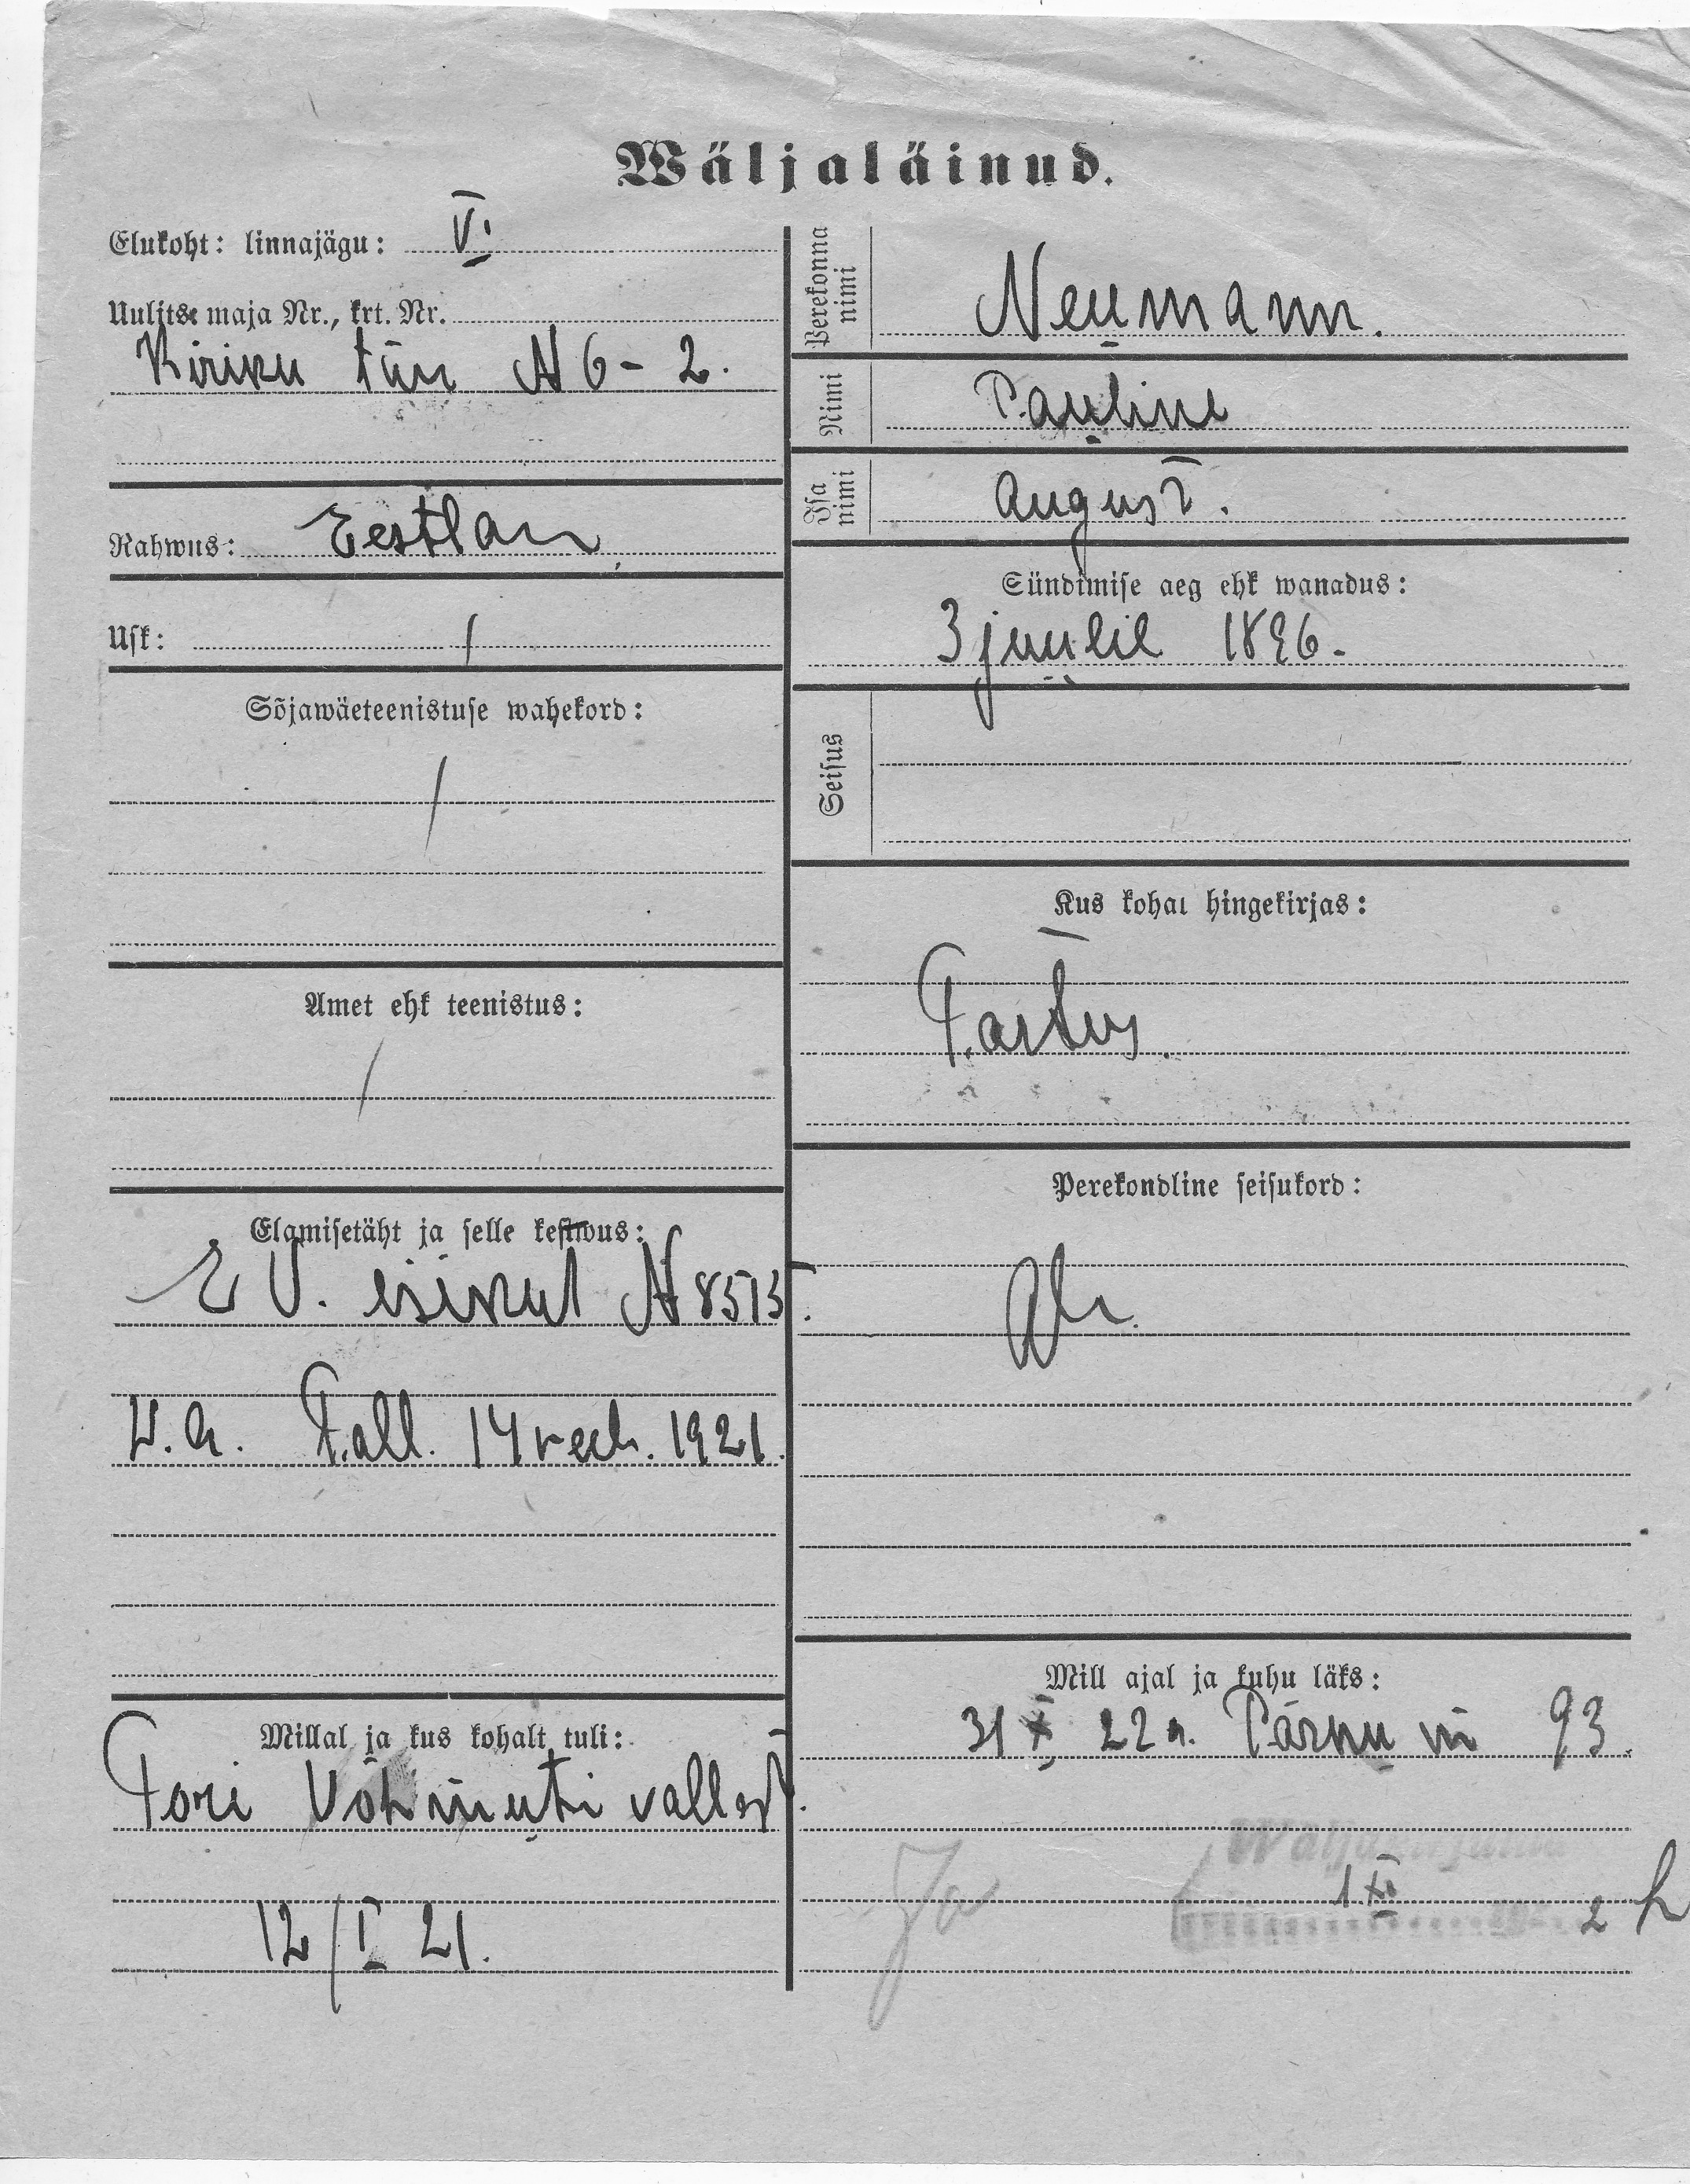 Wäljaläinud.
Elukoht: linnajägu: V.
Uulitse maja Nr., krt. Nr.
Kiriku tän N 6 - 2.
Rahwus: Eestlan
Usk: /
Sõjawäeteenistuse wahekord:
/
Amet ehk teenistus:
/
Elamisetäht ja selle kestwus:
E V. isikut N 8515.
W.A. Tall. 14 1921.
Millal ja kus kohalt tuli:
Tori Võhmuti vallast.
12/I 21.
Perekonna nimi
Neumann.
Nimi
Pauline
Isa nimi
August.
Sündimise aeg ehk wanadus:
3 juulil 1896.
Seisus
Kus kohal hingekirjas:
Tartus.
Perekondline seisukord:
Mill ajal ja kuhu läks:
31 X 22 a. Pärnu m 93.
1 XI 2
Ja